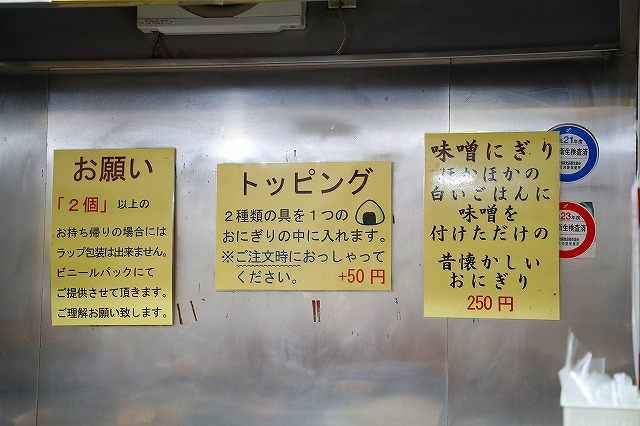 お願い
「２個」以上の
お持ち帰りの場合には
ラップ包装は出来ません。
ビニールパックにて
ご提供させて頂きます。
ご理解お願い致します。
トッピング
２種類の具を１つの
おにぎりの中に入れます。
※ご注文時におっしゃって
ください。 +50円
味噌にぎり
ほかほかの
白いごはんに
味噌を
付けただけの
昔懐かしい
おにぎり
250円
21年度
衛生検査済
23年度
検査済